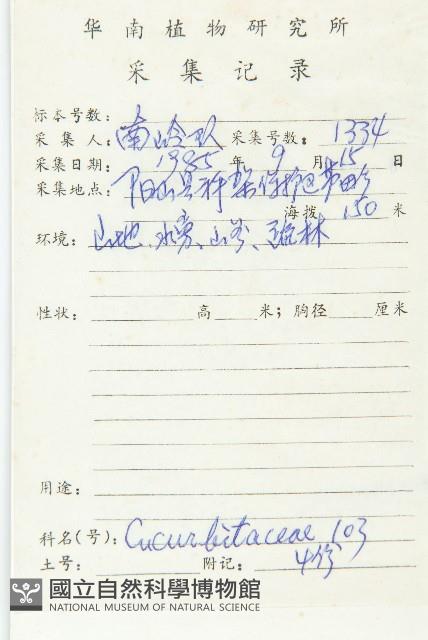 华南植物研究所
采集记录
标本号数：
采集人：南岭队 采集号数：1334
采集日期：1985年9月15日
采集地点：阳山县秤架保护区
海拨 150 米
环境：山地、水旁、山谷、疏林
性状： 高 米；胸径 厘米
用途：
科名(号)：Cucurbitaceae 103
土号： 附记： 4份
國立自然科學博物館
NATIONAL MUSEUM OF NATURAL SCIENCE